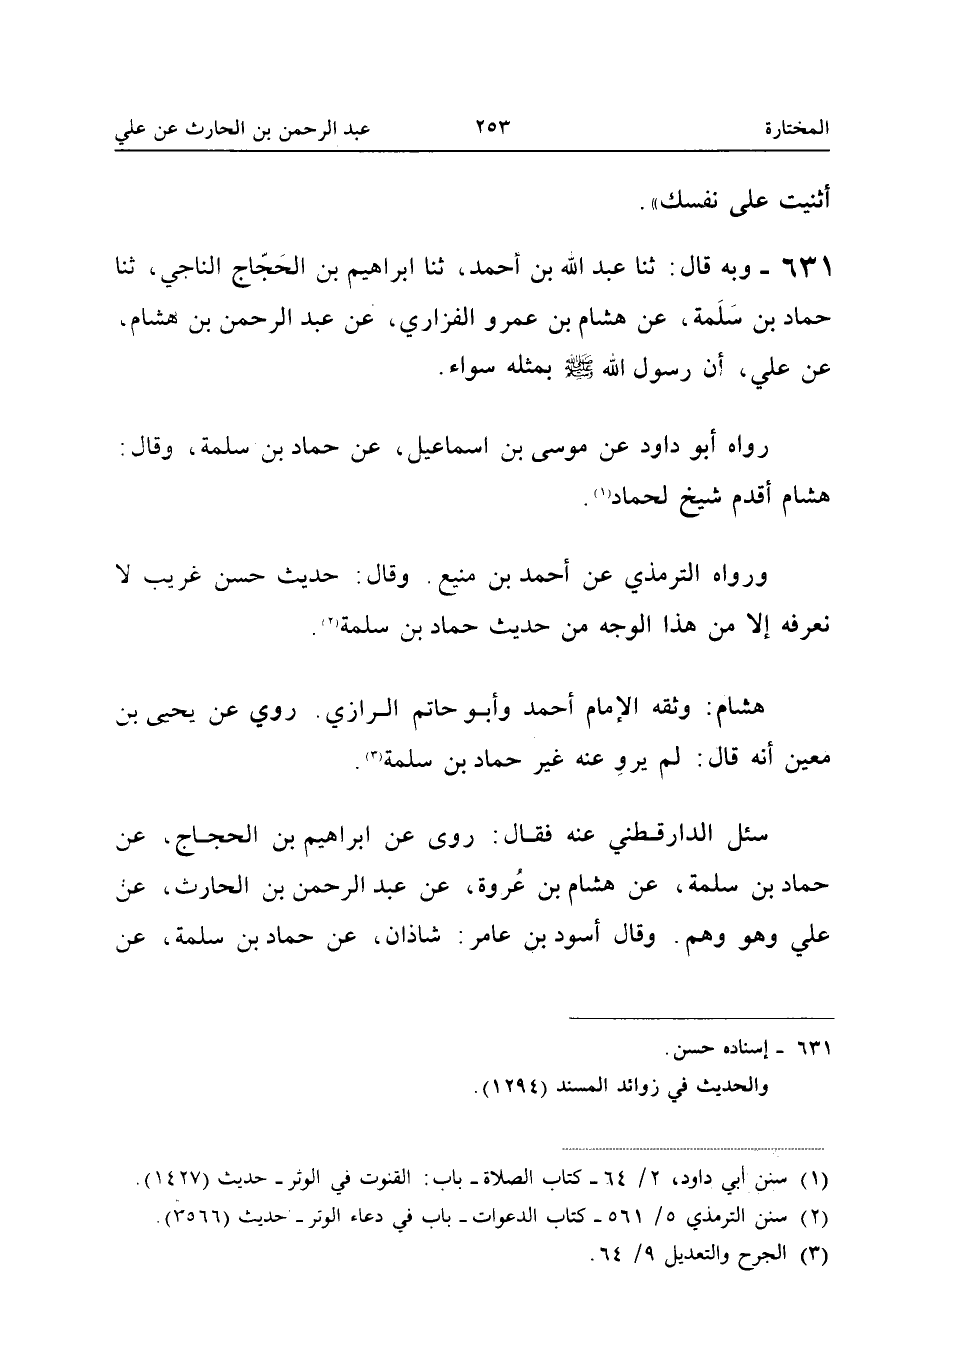 المختارة ٢٥٣ عبد الرحمن بن الحارث عن علي
أثنيت على نفسك» .
٦٣١ ـ وبه قال: ثنا عبد الله بن أحمد، ثنا ابراهيم بن الحَجّاج الناجي، ثنا
حماد بن سَلَمة، عن هشام بن عمرو الفزاري، عن عبد الرحمن بن هشام،
عن علي، أن رسول الله ﷺ بمثله سواء.
رواه أبو داود عن موسى بن اسماعيل، عن حماد بن سلمة، وقال:
هشام أقدم شيخ لحماد(١).
ورواه الترمذي عن أحمد بن منيع. وقال: حديث حسن غريب لا
نعرفه إلا من هذا الوجه من حديث حماد بن سلمة(٢).
هشام: وثقه الإمام أحمد وأبو حاتم الرازي. روي عن يحيى بن
معين أنه قال: لم يروِ عنه غير حماد بن سلمة(٣).
سئل الدارقطني عنه فقال: روى عن ابراهيم بن الحجاج، عن
حماد بن سلمة، عن هشام بن عُروة، عن عبد الرحمن بن الحارث، عن
علي وهو وهم. وقال أسود بن عامر: شاذان، عن حماد بن سلمة، عن
٦٣١ ـ إسناده حسن.
والحديث في زوائد المسند (١٢٩٤).
(١) سنن أبي داود، ٢/ ٦٤ ـ كتاب الصلاة ـ باب: القنوت في الوتر ـ حديث (١٤٢٧).
(٢) سنن الترمذي ٥/ ٥٦١ ـ كتاب الدعوات ـ باب في دعاء الوتر ـ حديث (٣٥٦٦).
(٣) الجرح والتعديل ٩/ ٦٤.